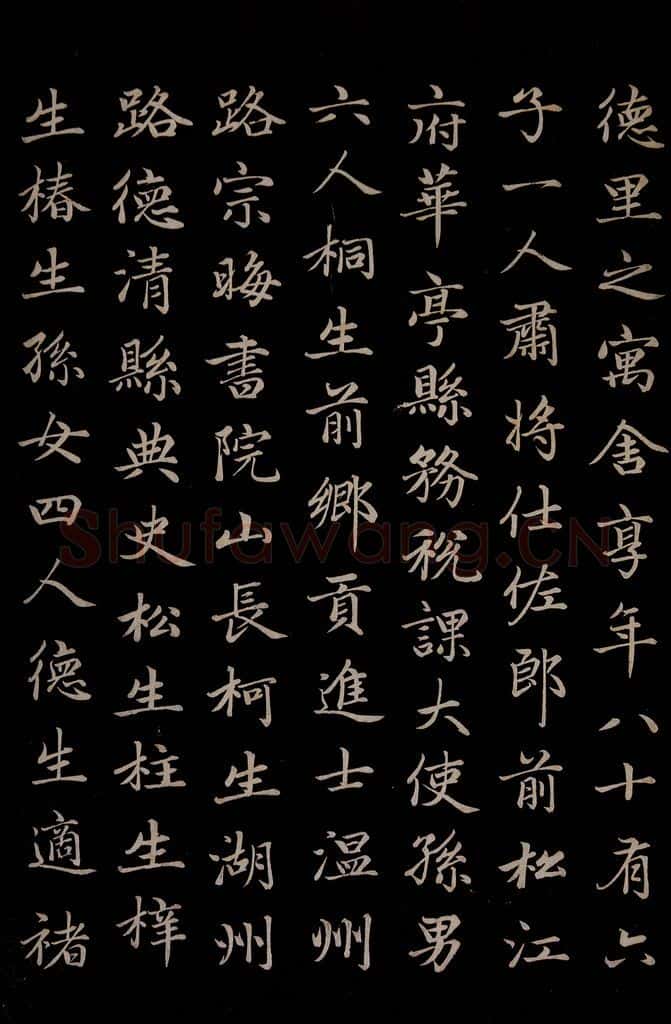 德里之寓舍享年八十有六
子一人肅將仕佐郎前松江
府華亭縣務稅課大使孫男
六人桐生前鄉貢進士温州
路宗晦書院山長柯生湖州
路德清縣典史松生柱生梓
生椿生孫女四人德生適褚
Shufawang.CN